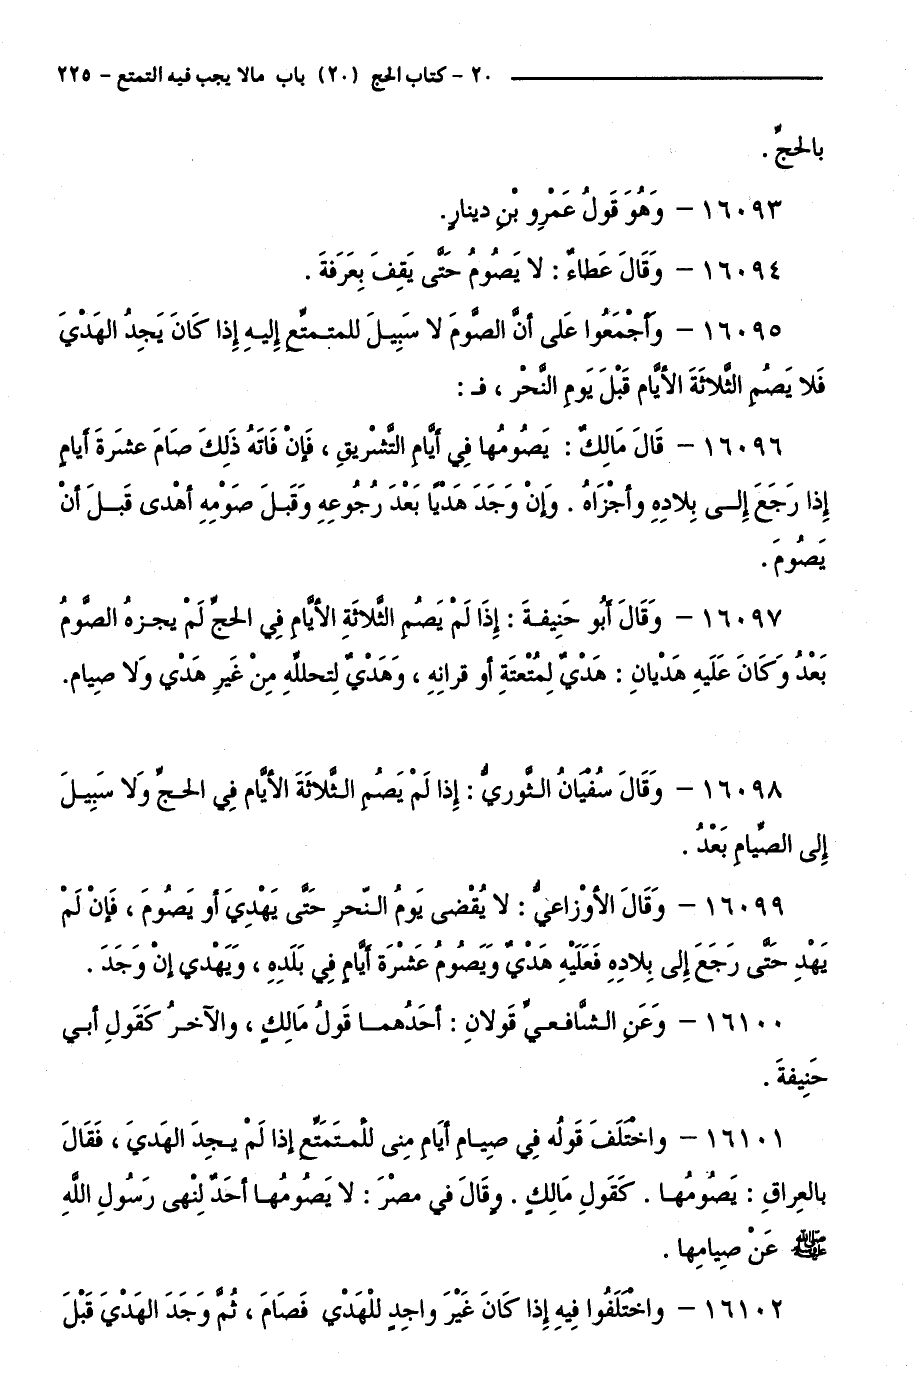 ٢٠ - كتاب الحج (٢٠) باب مالا يجب فيه التمتع - ٢٢٥
بالحجِّ .
١٦٠٩٣ - وَهُوَ قَولُ عَمْرِو بْنِ دينارٍ.
١٦٠٩٤ - وَقَالَ عَطاءٌ : لا يَصُومُ حَتَّى يَقِفَ بِعَرَفَةَ .
١٦٠٩٥ - وَأَجْمَعُوا عَلى أنَّ الصَّومَ لا سَبِيلَ للمتمتِّعِ إِليهِ إذا كَانَ يَجِدُ الهَدْيَ
فَلا يَصُمِ الثَّلاثَةَ الأيَّام قَبْلَ يَومِ النَّحْرِ ، فـ :
١٦٠٩٦ - قَالَ مَالِكٌ : يَصُومُها فِي أيَّامِ التَّشْريقِ ، فَإنْ فَاتَهُ ذَلِكَ صَامَ عشرَةَ أيامٍ
إِذا رَجَعَ إِلـى بِلادِهِ وأجْزَاهُ . وَإنْ وَجَدَ هَدْيًا بَعْدَ رُجُوعِهِ وَقَبلَ صَوْمِهِ أهْدى قَبـلَ أنْ
يَصُومَ .
١٦٠٩٧ - وَقَالَ أَبُو حَنِيفـةَ : إِذَا لَمْ يَصُمِ الثَّلاثَةِ الأيَّامِ فِي الحجِّ لَمْ يجـزه الصَّومُ
بَعْدُ وَكَانَ عَلَيهِ هَدْيانِ : هَدْيٌ لِمُتْعَتَةِ أو قرانِهِ ، وَهَدْيٌ لِتحللِّهِ مِنْ غَيرِ هَدْيٍ وَلا صيام.
١٦٠٩٨ - وَقَالَ سُفْيَانُ الـثَّوريُّ : إِذا لَمْ يَصُمِ الـثَّلاثَةَ الأيَّام فِي الحـجِّ وَلا سَبِيـلَ
إِلى الصِّيامِ بَعْدُ .
١٦٠٩٩ - وَقَالَ الأوْزاعيُّ : لا يُقْضى يَومُ الـنَّحرِ حَتَّى يَهْدِيَ أو يَصُومَ ، فَإنْ لَمْ
يَهْدِ حَتَّى رَجَعَ إلى بِلادِهِ فَعَلَيْهِ هَدْيٌ وَيَصُومُ عَشْرَةَ أيَّامٍ فِي بَلَدِهِ ، وَيَهْدي إنْ وَجَدَ .
١٦١٠٠ - وَعَنِ الـشَّافـعيِّ قَولانِ : أحَدُهمـا قَولُ مَالِكٍ ، والآخـرُ كَقَولِ أبـي
حَنِيفةَ .
١٦١٠١ - واخْتَلَفَ قَولُه فِي صيـامِ أيَّامِ مِنى للْمـتَمَتَّعِ إذا لَمْ يـجِدَ الهَديَ ، فَقَالَ
بالعِراقِ : يَصُومُهـا . كَقَولِ مَالِكٍ . وقَالَ في مصْرَ : لا يَصُومُهـا أحَدٌ لِنْهى رَسُولِ اللَّهِ
ﷺ عَنْ صِيامِها .
١٦١٠٢ - واخْتَلَفُوا فِيهِ إِذا كَانَ غَيْرَ واجِدٍ للْهَدْي فَصَامَ ، ثُمَّ وَجَدَ الهَدْيَ قَبْلَ